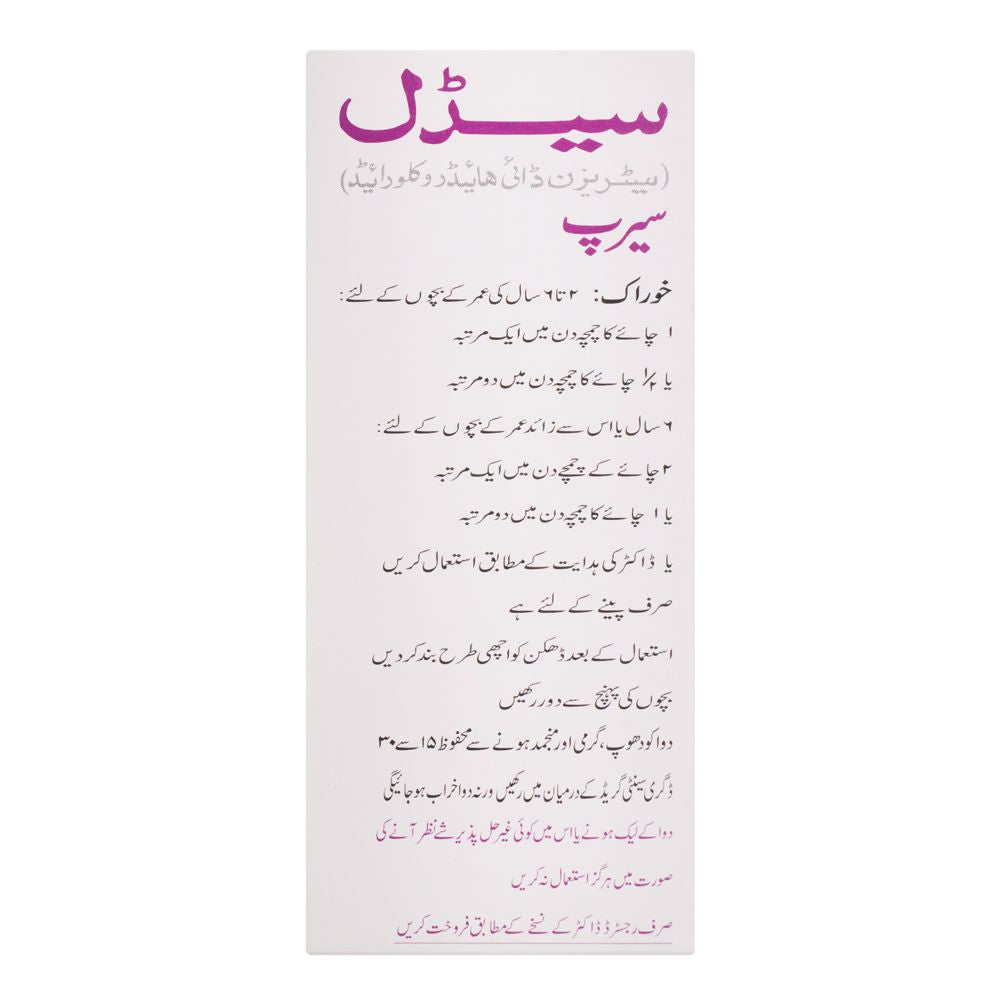 سیڈل
(سیٹریزن ڈائی ھائیڈروکلورائیڈ)
سیرپ
خوراک: ۲ تا ۶ سال کی عمر کے بچوں کے لئے:
۱ چائے کا چمچہ دن میں ایک مرتبہ
یا ۱/۲ چائے کا چمچہ دن میں دو مرتبہ
۶ سال یا اس سے زائد عمر کے بچوں کے لئے:
۲ چائے کے چمچے دن میں ایک مرتبہ
یا ۱ چائے کا چمچہ دن میں دو مرتبہ
یا ڈاکٹر کی ہدایت کے مطابق استعمال کریں
صرف پینے کے لئے ہے
استعمال کے بعد ڈھکن کو اچھی طرح بند کر دیں
بچوں کی پہنچ سے دور رکھیں
دوا کو دھوپ، گرمی اور منجمد ہونے سے محفوظ ۱۵ سے ۳۰
ڈگری سینٹی گریڈ کے درمیان میں رکھیں ورنہ دوا خراب ہو جائیگی
دوا کے لیک ہونے یا اس میں کوئی غیر حل پذیر شے نظر آنے کی
صورت میں ہرگز استعمال نہ کریں
صرف رجسٹرڈ ڈاکٹر کے نسخے کے مطابق فروخت کریں